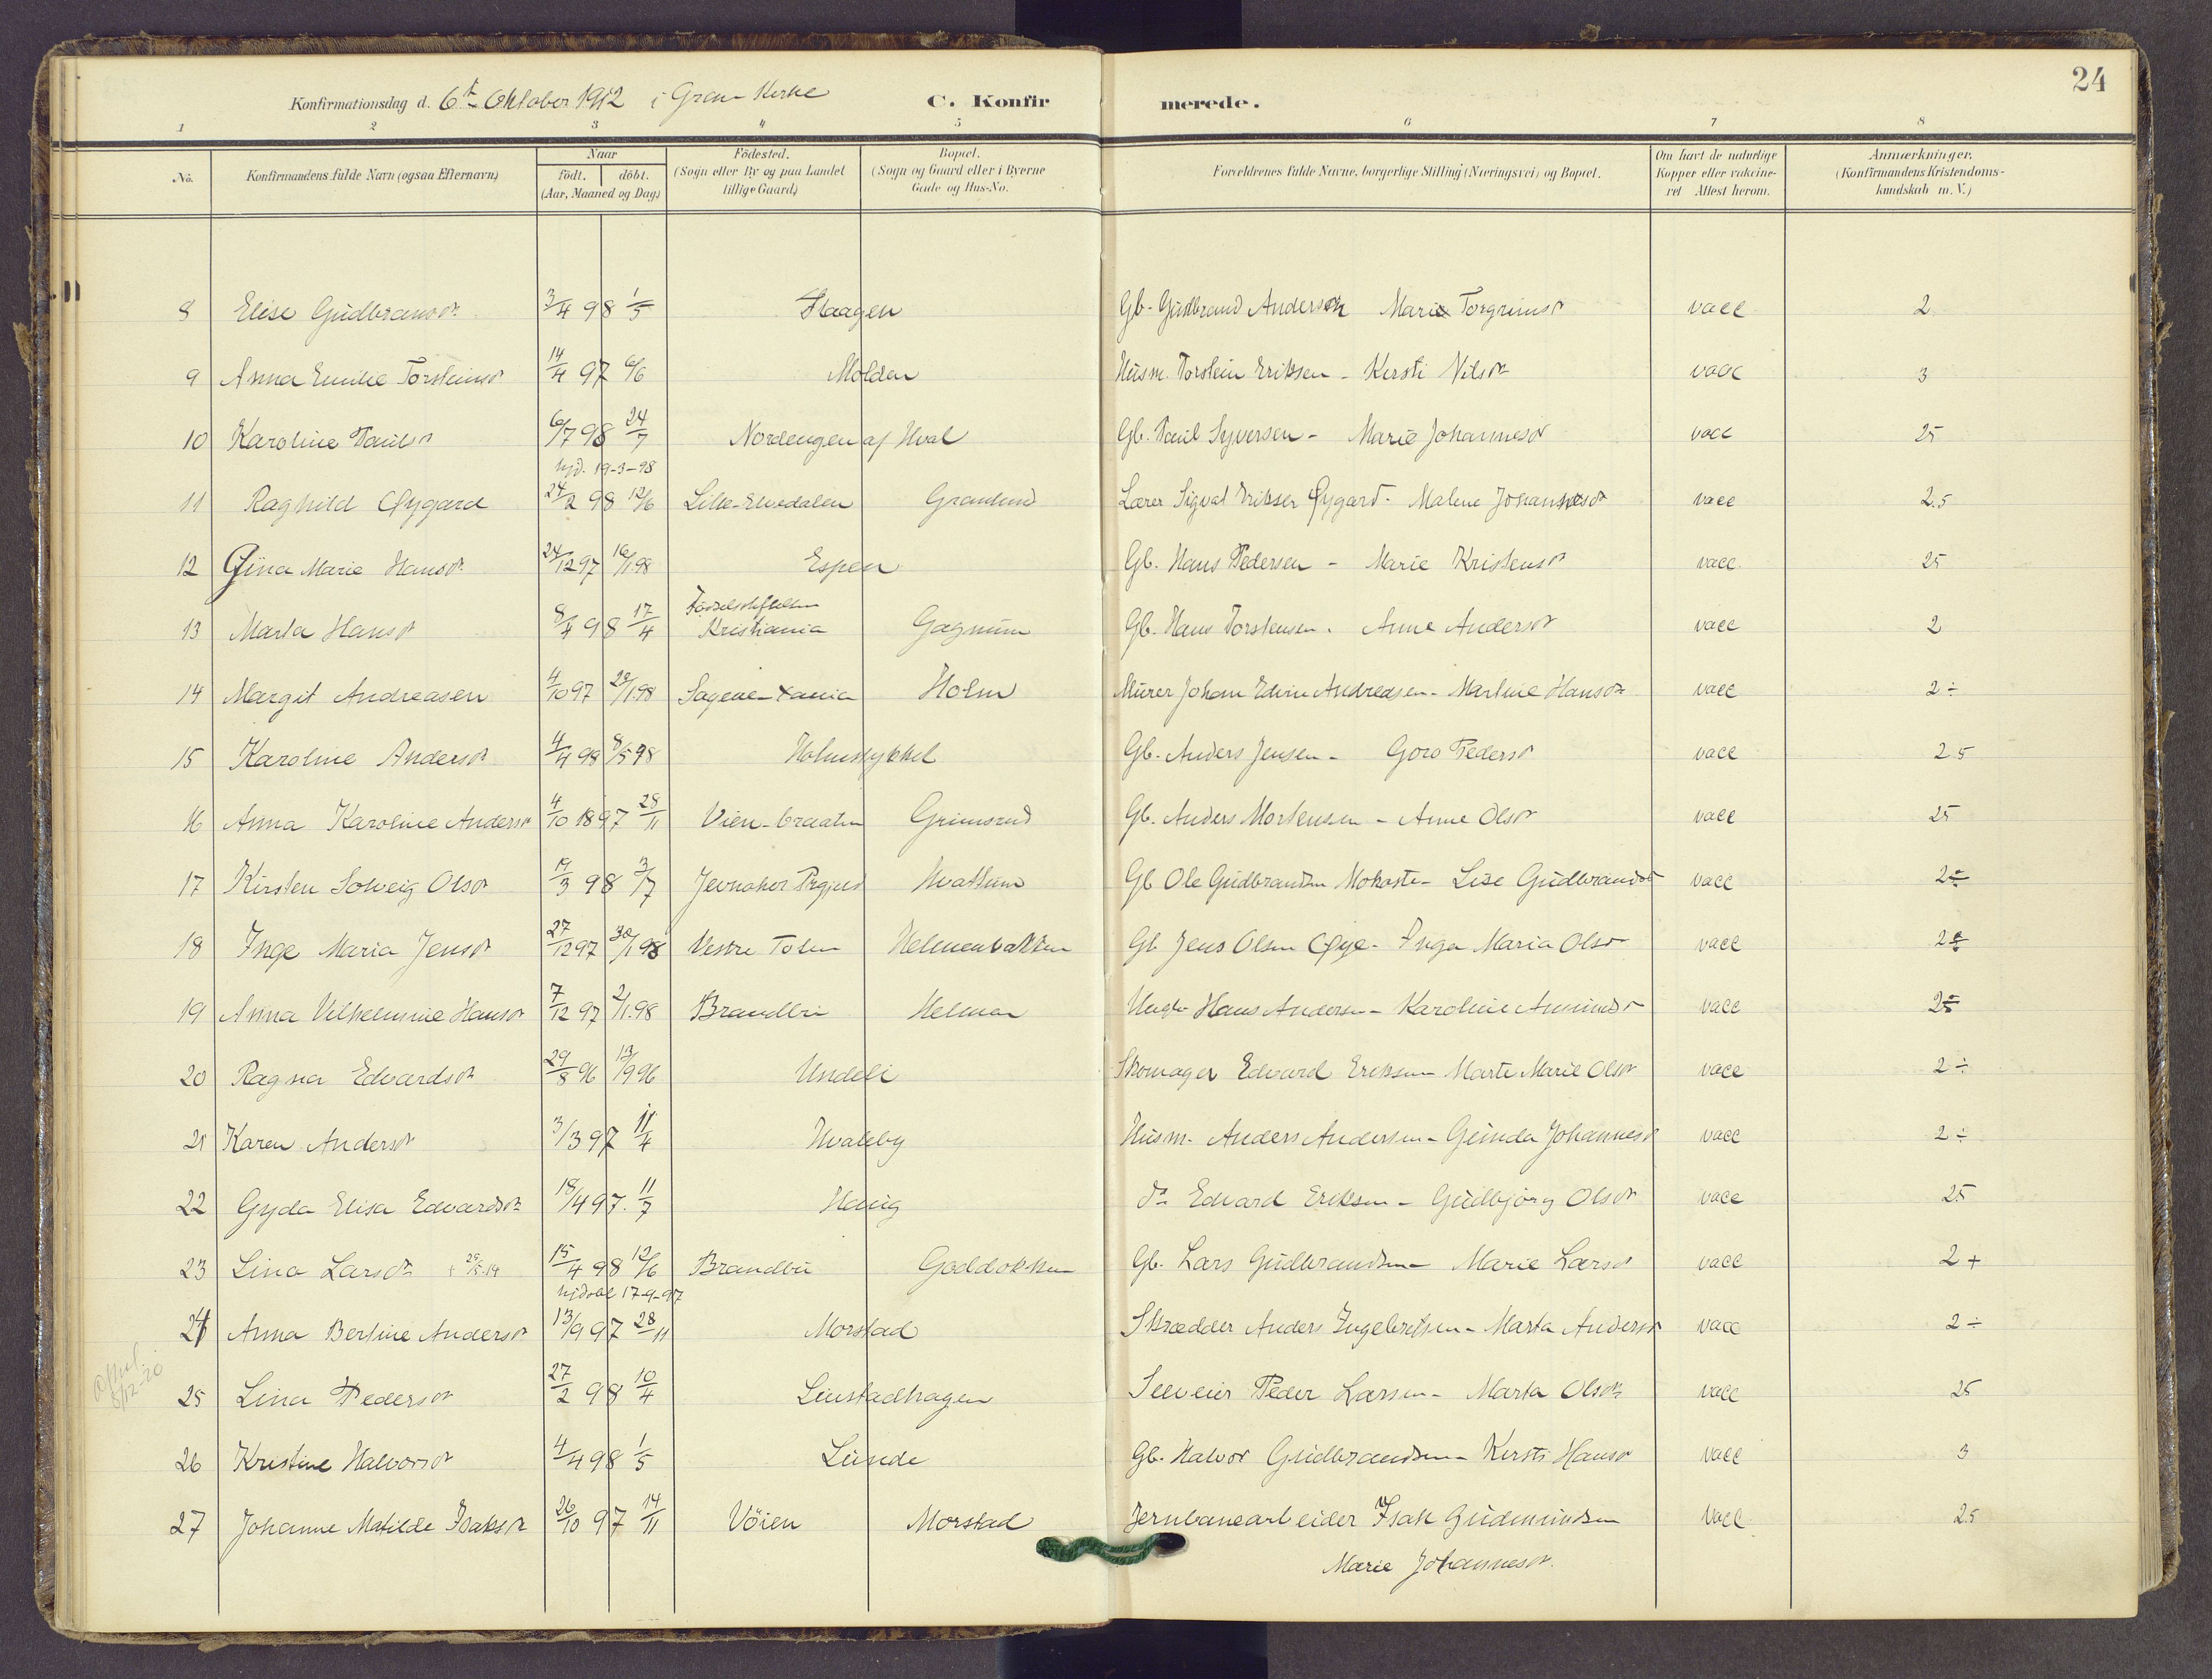 24
Konfirmationsdag d. 6te Oktober 1912 i Gran Kirke C. Konfir merede.
1 2 3 4 5 6 7 8
No. Konfirmandens fulde Navn (ogsaa Efternavn) Naar födt. döbt. (Aar, Maaned og Dag) Födested. (Sogn eller By og paa Landet tillige Gaard) Bopæl. (Sogn og Gaard eller i Byerne Gade og Hus-No. Forældrenes fulde Navne, borgerlige Stilling (Næringsvei) og Bopæl. Om havt de naturlige Kopper eller vakcineret Attest herom. Anmærkninger. (Konfirmandens Kristendomskundskab m. V.)
8 Elise Gudbransdr 3/4 98 1/5 Haagen Gb. Gudbrand Andersen Marie Torgrimsdr vacc 2
9 Anna Emilie Torsteinsdr 14/4 97 6/6 Molden Husm. Torstein Eriksen - Kersti Nilsdr vacc 3
10 Karoline Paulsdr 6/7 98 24/7 Nordengen af Hval Gb. Paul Syversen - Marie Johannesdr vacc 25
hjd. 19-3-98
11 Ragnhild Øygard 24/2 98 12/6 Lille-Elvedalen Granlund Lærer Sigvat Eriksen Øygard - Malene Johansdr vacc 2.5
12 Gina Marie Hansdr 24/12 97 16/1.98 Espen Gb. Hans Pedersen - Marie Kristensdr vacc 25
13 Marta Hansdr 8/4 98 17/4 Födselsstiftelsen Kristiania Gagnum Gb. Hans Torstensen. Anne Andersdr vacc 2
14 Margit Andreasen 4/10 97 23/1.98 Sagene-Xania Holm Murer Johan Edvin Andreasen - Martine Hansdr vacc 2÷
15 Karoline Andersdr 4/4 98 8/5 98 Holmstykket Gb. Anders Jensen - Goro Pedersdr vacc 25
16 Anna Karoline Andersdr 4/10 1897 28/11 Vien-braaten Grimsrud Gb. Anders Mortensen - Anne Olsdr vacc 25
17 Kirsten Solveig Olsdr 19/3 98 3/7 Jevnaker Prgjeld Hvattum Gb Ole Gudbrandsen Mohaste- Lise Gudbrandsdr vacc 2÷
18 Inge Maria Jensdr 27/12 97 30/1 98 Vestre Toten Helmenbakken Gb Jens Olsen Øye - Inga Maria Olsdr vacc 2÷
19 Anna Vilhelmine Hansdr 7/12 97 2/1.98 Brandbu Helmen Hans Andersen - Karoline Amundsdr vacc 2÷
20 Ragna Edvardsdr 29/8 96 13/9 96 Undeli Skomager Edvard Eriksen - Marte Marie Olsdr vacc 2÷
21 Karen Andersdr 3/3 97 11/4 Hvaleby Husm. Anders Andersen - Gunda Johannesdr vacc 2÷
22 Gyda Elisa Edvardsdr 18/4 97. 11/7 Haug do Edvard Eriksen - Gudbjörg Olsdr vacc 25
23 Lina Larsdr + 29/5-14 15/4 98 12/6 Brandbu Goddokken Gb. Lars Gudbrandsen - Marie Larsdr vacc 2+
hjdøbt 17-9-97
24 Anna Bertine Andersdr 13/9 97 28/11 Morstad Skrædder Anders Ingebretsen - Marta Andersdr vacc 2÷
25 Lina Pedersdr 27/2 98 10/4 Linstadhagen Selveier Peder Larsen - Marta Olsdr vacc 25
26 Kristine Halvorsdr 4/4 98 1/5 Lunde Gb. Halvor Gudbrandsen - Kersti Hansdr vacc 3
27 Johanne Matilde Isaksdr 26/10 97 14/11 Vöien Morstad Jernbanearbeider Isak Gudmundsen Vacc 2.5
Marie Johannesdr.